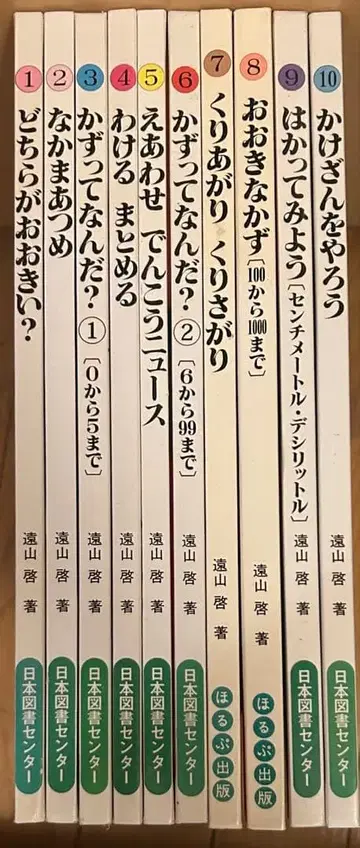 1
どちらがおおきい?
遠山 啓 著
日本図書センター
2
なかまあつめ
遠山 啓 著
日本図書センター
3
かずってなんだ? ① 〔0から5まで〕
遠山 啓 著
日本図書センター
4
わける まとめる
遠山 啓 著
日本図書センター
5
えあわせ でんこうニュース
遠山 啓 著
日本図書センター
6
かずってなんだ? ② 〔6から99まで〕
遠山 啓 著
日本図書センター
7
くりあがり くりさがり
遠山 啓 著
ほるぷ出版
8
おおきなかず〔100から1000まで〕
遠山 啓 著
ほるぷ出版
9
はかってみよう〔センチメートル・デシリットル〕
遠山 啓 著
日本図書センター
10
かけざんをやろう
遠山 啓 著
日本図書センター